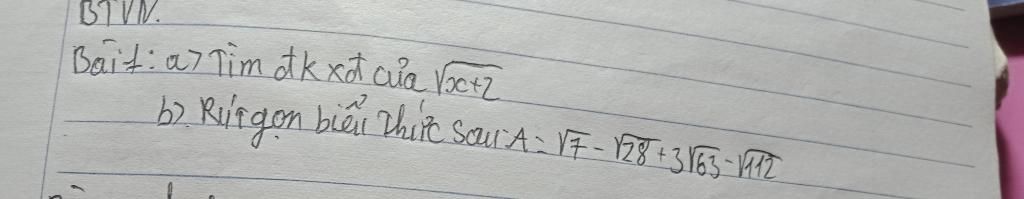 BTVN.
Bài 1: a> Tìm đk xđ của √x+2
b> Rút gọn biểu thức sau: A = √7 - √28 + 3√63 - √112